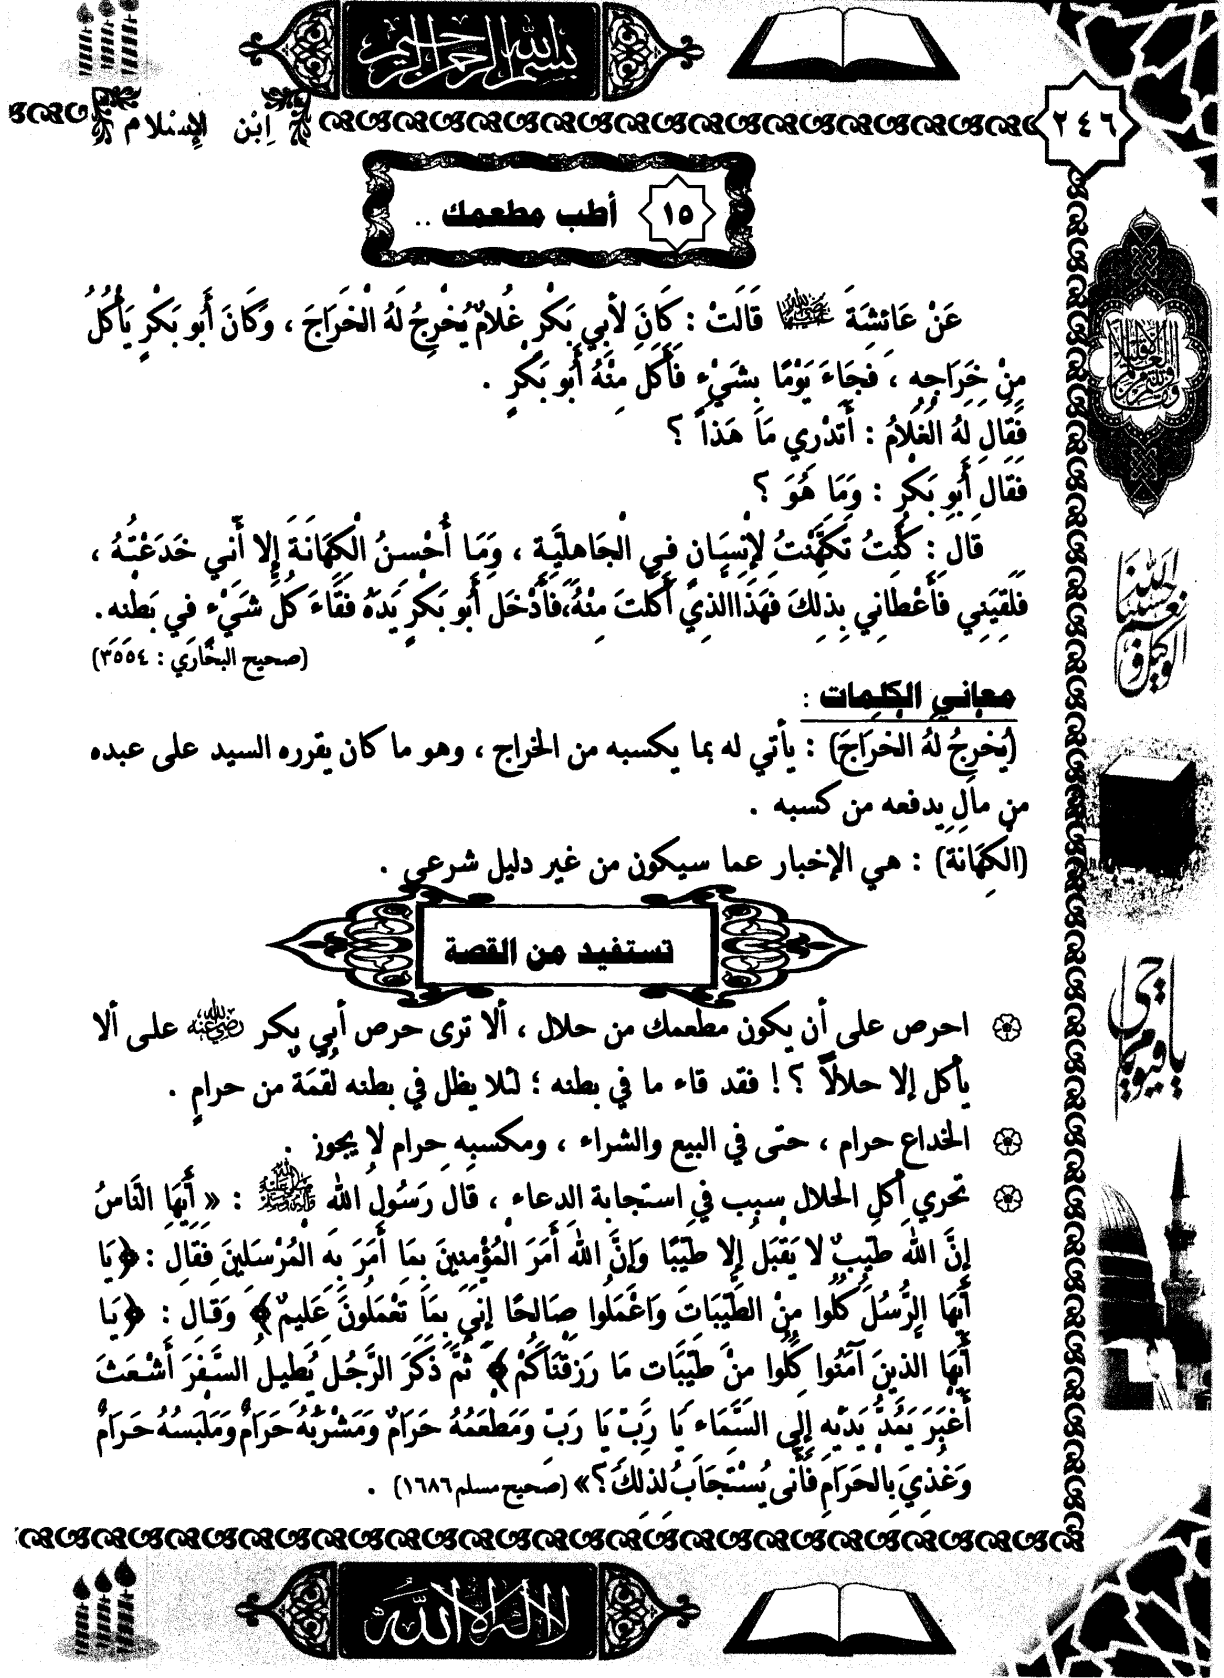 بسم الله الرحمن الرحيم
ابْن الإسْلام
٢٤٦
١٥ أطب مطعمك ..
عَنْ عَائشَةَ رضي الله عنها قَالَتْ : كَانَ لأبي بَكْرٍ غُلامٌ يُخْرِجُ لَهُ الْخَرَاجَ ، وَكَانَ أَبو بَكْرٍ يَأْكُلُ
مِنْ خَرَاجِهِ ، فَجَاءَ يَوْمًا بِشَيْءٍ فَأَكَلَ مِنْهُ أَبو بَكْرٍ .
فَقَالَ لَهُ الْغُلامُ : أَتَدْرِي مَا هَذَا ؟
فَقَالَ أَبو بَكْرٍ : وَمَا هُوَ ؟
قَالَ : كُنْتُ تَكَهَّنْتُ لإنْسَانٍ فِي الْجَاهلَيَّةِ ، وَمَا أُحْسنُ الْكهَانَةَ إلا أَني خَدَعْتُهُ ،
فَلَقيَني فَأَعْطَاني بِذلِكَ فَهَذَا الذِي أَكَلْتَ مِنْهُ،فَأَدْخَلَ أَبو بَكْرٍ يَدَهُ فَقَاءَ كُلَّ شَيْءٍ في بَطْنه.
(صحيح البخاري : ٣٥٥٤)
معاني الكلمات :
(يُخرِجُ لَهُ الخرَاجَ) : يأتي له بما يكسبه من الخراج ، وهو ما كان يقرره السيد على عبده
من مال يدفعه من كسبه .
(الْكِهَانَة) : هي الإخبار عما سيكون من غير دليل شرعي .
تستفيد من القصة
احرص على أن يكون مطعمك من حلال ، ألا ترى حرص أبي بكر رضي الله عنه على ألا
يأكل إلا حلالاً ؟ ! فقد قاء ما في بطنه ؛ لئلا يظل في بطنه لُقمَة من حرامٍ .
الخداع حرام ، حتى في البيع والشراء ، ومكسبه حرام لا يجوز .
تحري أكل الحلال سبب في استجابة الدعاء ، قال رَسُول الله ﷺ : « أَيُّهَا النَّاسُ
إنَّ اللهَ طَيّبٌ لا يَقْبَل إلا طَيّبًا وَإنَّ اللهَ أَمَرَ الْمُؤْمنينَ بمَا أَمَرَ به الْمُرْسَلينَ فَقَالَ : ﴿يَا
أَيُّهَا الرُّسُلُ كُلُوا منْ الطَّيّبَات وَاعْمَلُوا صَالحًا إنّي بمَا تَعْمَلُونَ عَليمٌ﴾ وَقَال : ﴿يَا
أَيُّهَا الذينَ آمَنُوا كُلُوا منْ طَيّبَات مَا رَزَقْنَاكُمْ﴾ ثُمَّ ذَكَرَ الرَّجُل يُطيل السَّفَرَ أَشْعَثَ
أَغْبَرَ يَمُدُّ يَدَيْه إلى السَّمَاء يَا رَبّ يَا رَبّ وَمَطْعَمُهُ حَرَامٌ وَمَشْرَبُهُ حَرَامٌ وَمَلْبَسُهُ حَرَامٌ
وَغُذيَ بالْحَرَام فَأَنى يُسْتَجَابُ لذلكَ ؟» (صحيح مسلم ١٦٨٦) .
حسبنا الله ونعم الوكيل
يا حي يا قيوم
لا إله إلا الله